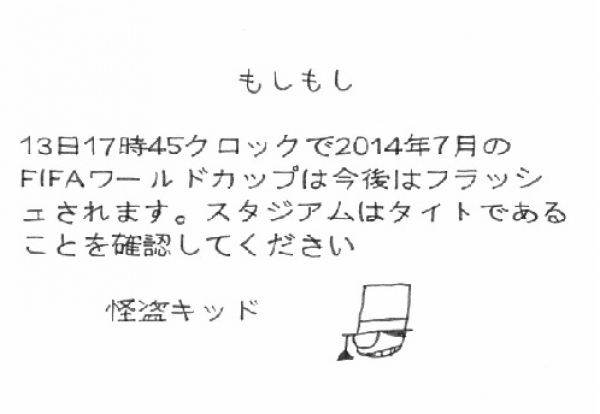 もしもし
13日17時45クロックで2014年7月の
FIFAワールドカップは今後はフラッシ
ュされます。スタジアムはタイトである
ことを確認してください
怪盗キッド